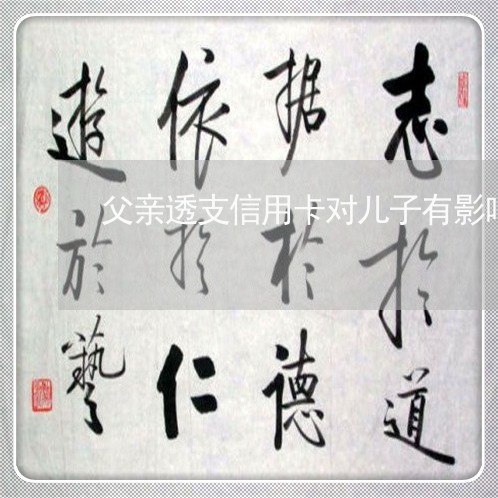 志扵道
据扵德
依扵仁
遊於藝
父亲透支信用卡对儿子有影